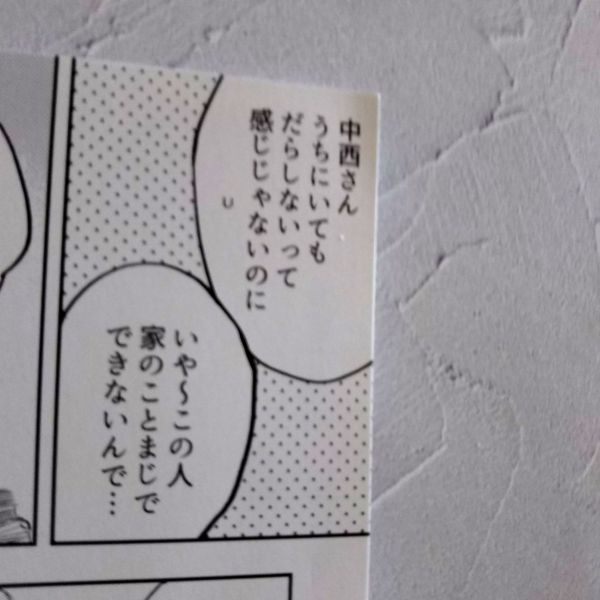 中西さん
うちにいても
だらしないって
感じじゃないのに
いや～この人
家のことまじで
できないんで…